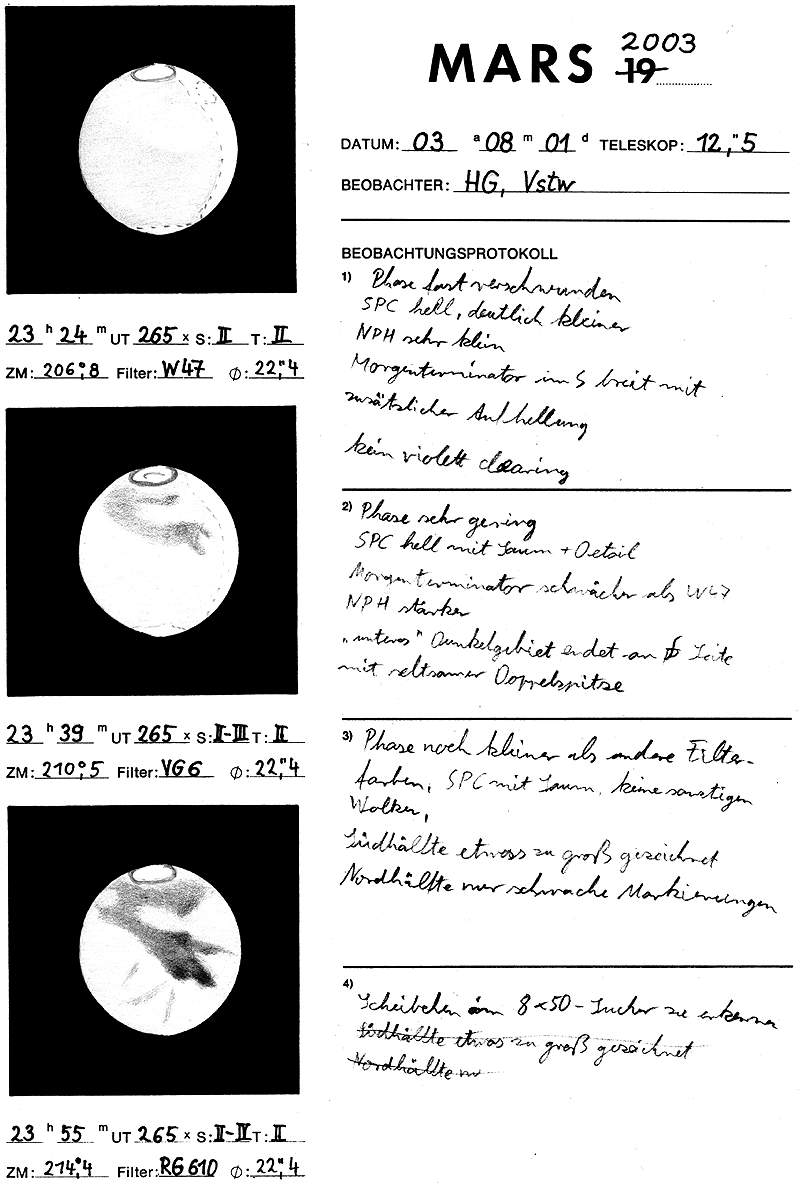 MARS 2003
19
DATUM: 03 a 08 m 01 d TELESKOP: 12,"5
BEOBACHTER: HG, Vstw
BEOBACHTUNGSPROTOKOLL
1) Phase fast verschwunden
SPC hell, deutlich kleiner
NPH sehr klein
Morgenterminator im S breit mit
zusätzlicher Aufhellung
kein violett clearing
23 h 24 m UT 265 x S: II T: II
ZM: 206°,8 Filter: W47 Ø: 22",4
2) Phase sehr gering
SPC hell mit Saum + Detail
Morgenterminator schwächer als W47
NPH stärker
"unteres" Dunkelgebiet endet an Seite
mit seltsamer Doppelspitze
23 h 39 m UT 265 x S: II-III T: II
ZM: 210°,5 Filter: VG6 Ø: 22",4
3) Phase noch kleiner als andere Filter-
farben, SPC mit Saum, keine sonstigen
Wolken,
Südhälfte etwas zu groß gezeichnet
Nordhälfte nur schwache Markierungen
23 h 55 m UT 265 x S: II-III T: II
ZM: 214°,4 Filter: RG610 Ø: 22",4
4) Scheibchen im 8x50-Sucher zu erkennen
Südhälfte etwas zu groß gezeichnet
Nordhälfte nu